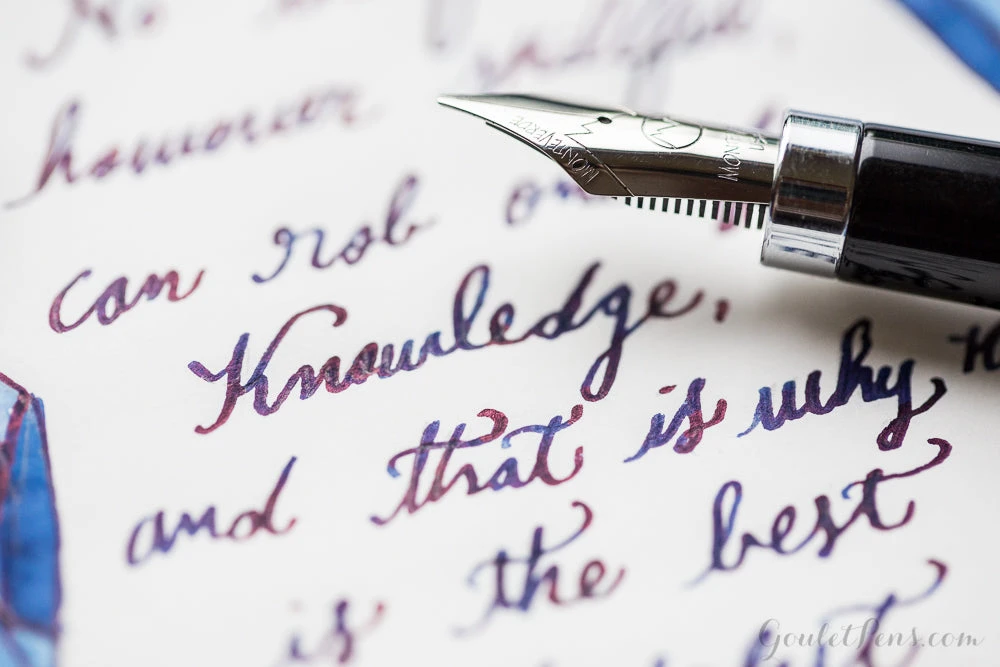 No
however
can rob
Knowledge,
and that is why
is the best
MONTEVERDE
GouletPens.com